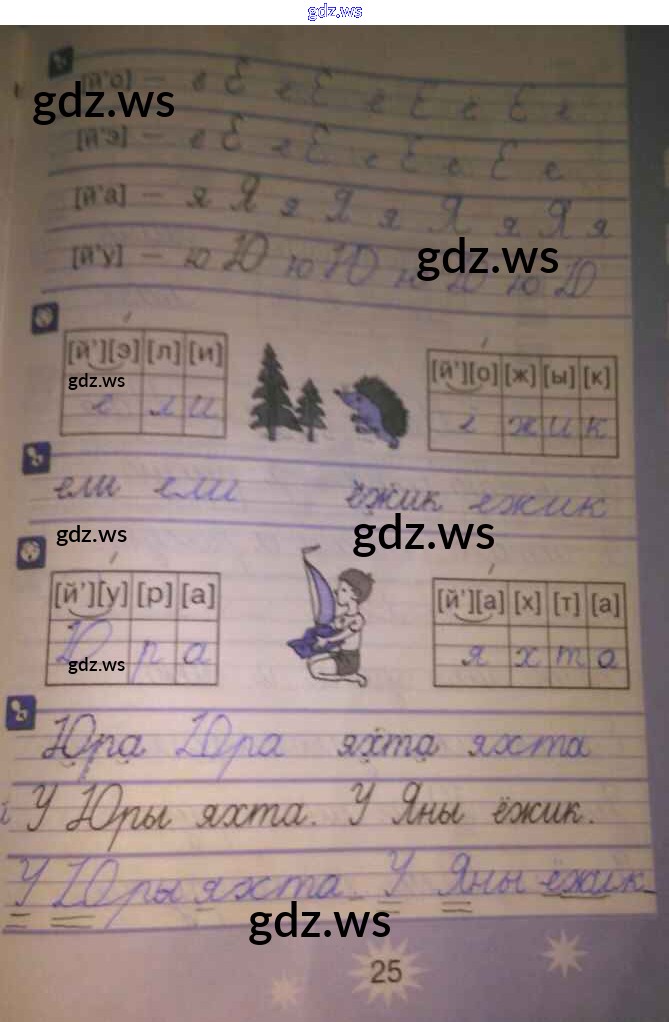 gdz.ws
[й'о] – ё Ё ё Ё ё Ё ё Ё ё
gdz.ws
[й'э] – е Е е Е е Е е Е е
[й'а] – я Я я Я я Я я Я я
[й'у] – ю Ю ю Ю ю Ю ю Ю
gdz.ws
[й'][э][л][и] [й'][о][ж][ы][к]
gdz.ws
е л и ё ж и к
ели ели ёжик ежик
gdz.ws gdz.ws
[й'][у][р][а] [й'][а][х][т][а]
Ю р а я х т а
gdz.ws
Юра Юра яхта яхта
У Юры яхта. У Яны ёжик.
У Юры яхта. У Яны ёжик.
gdz.ws
25